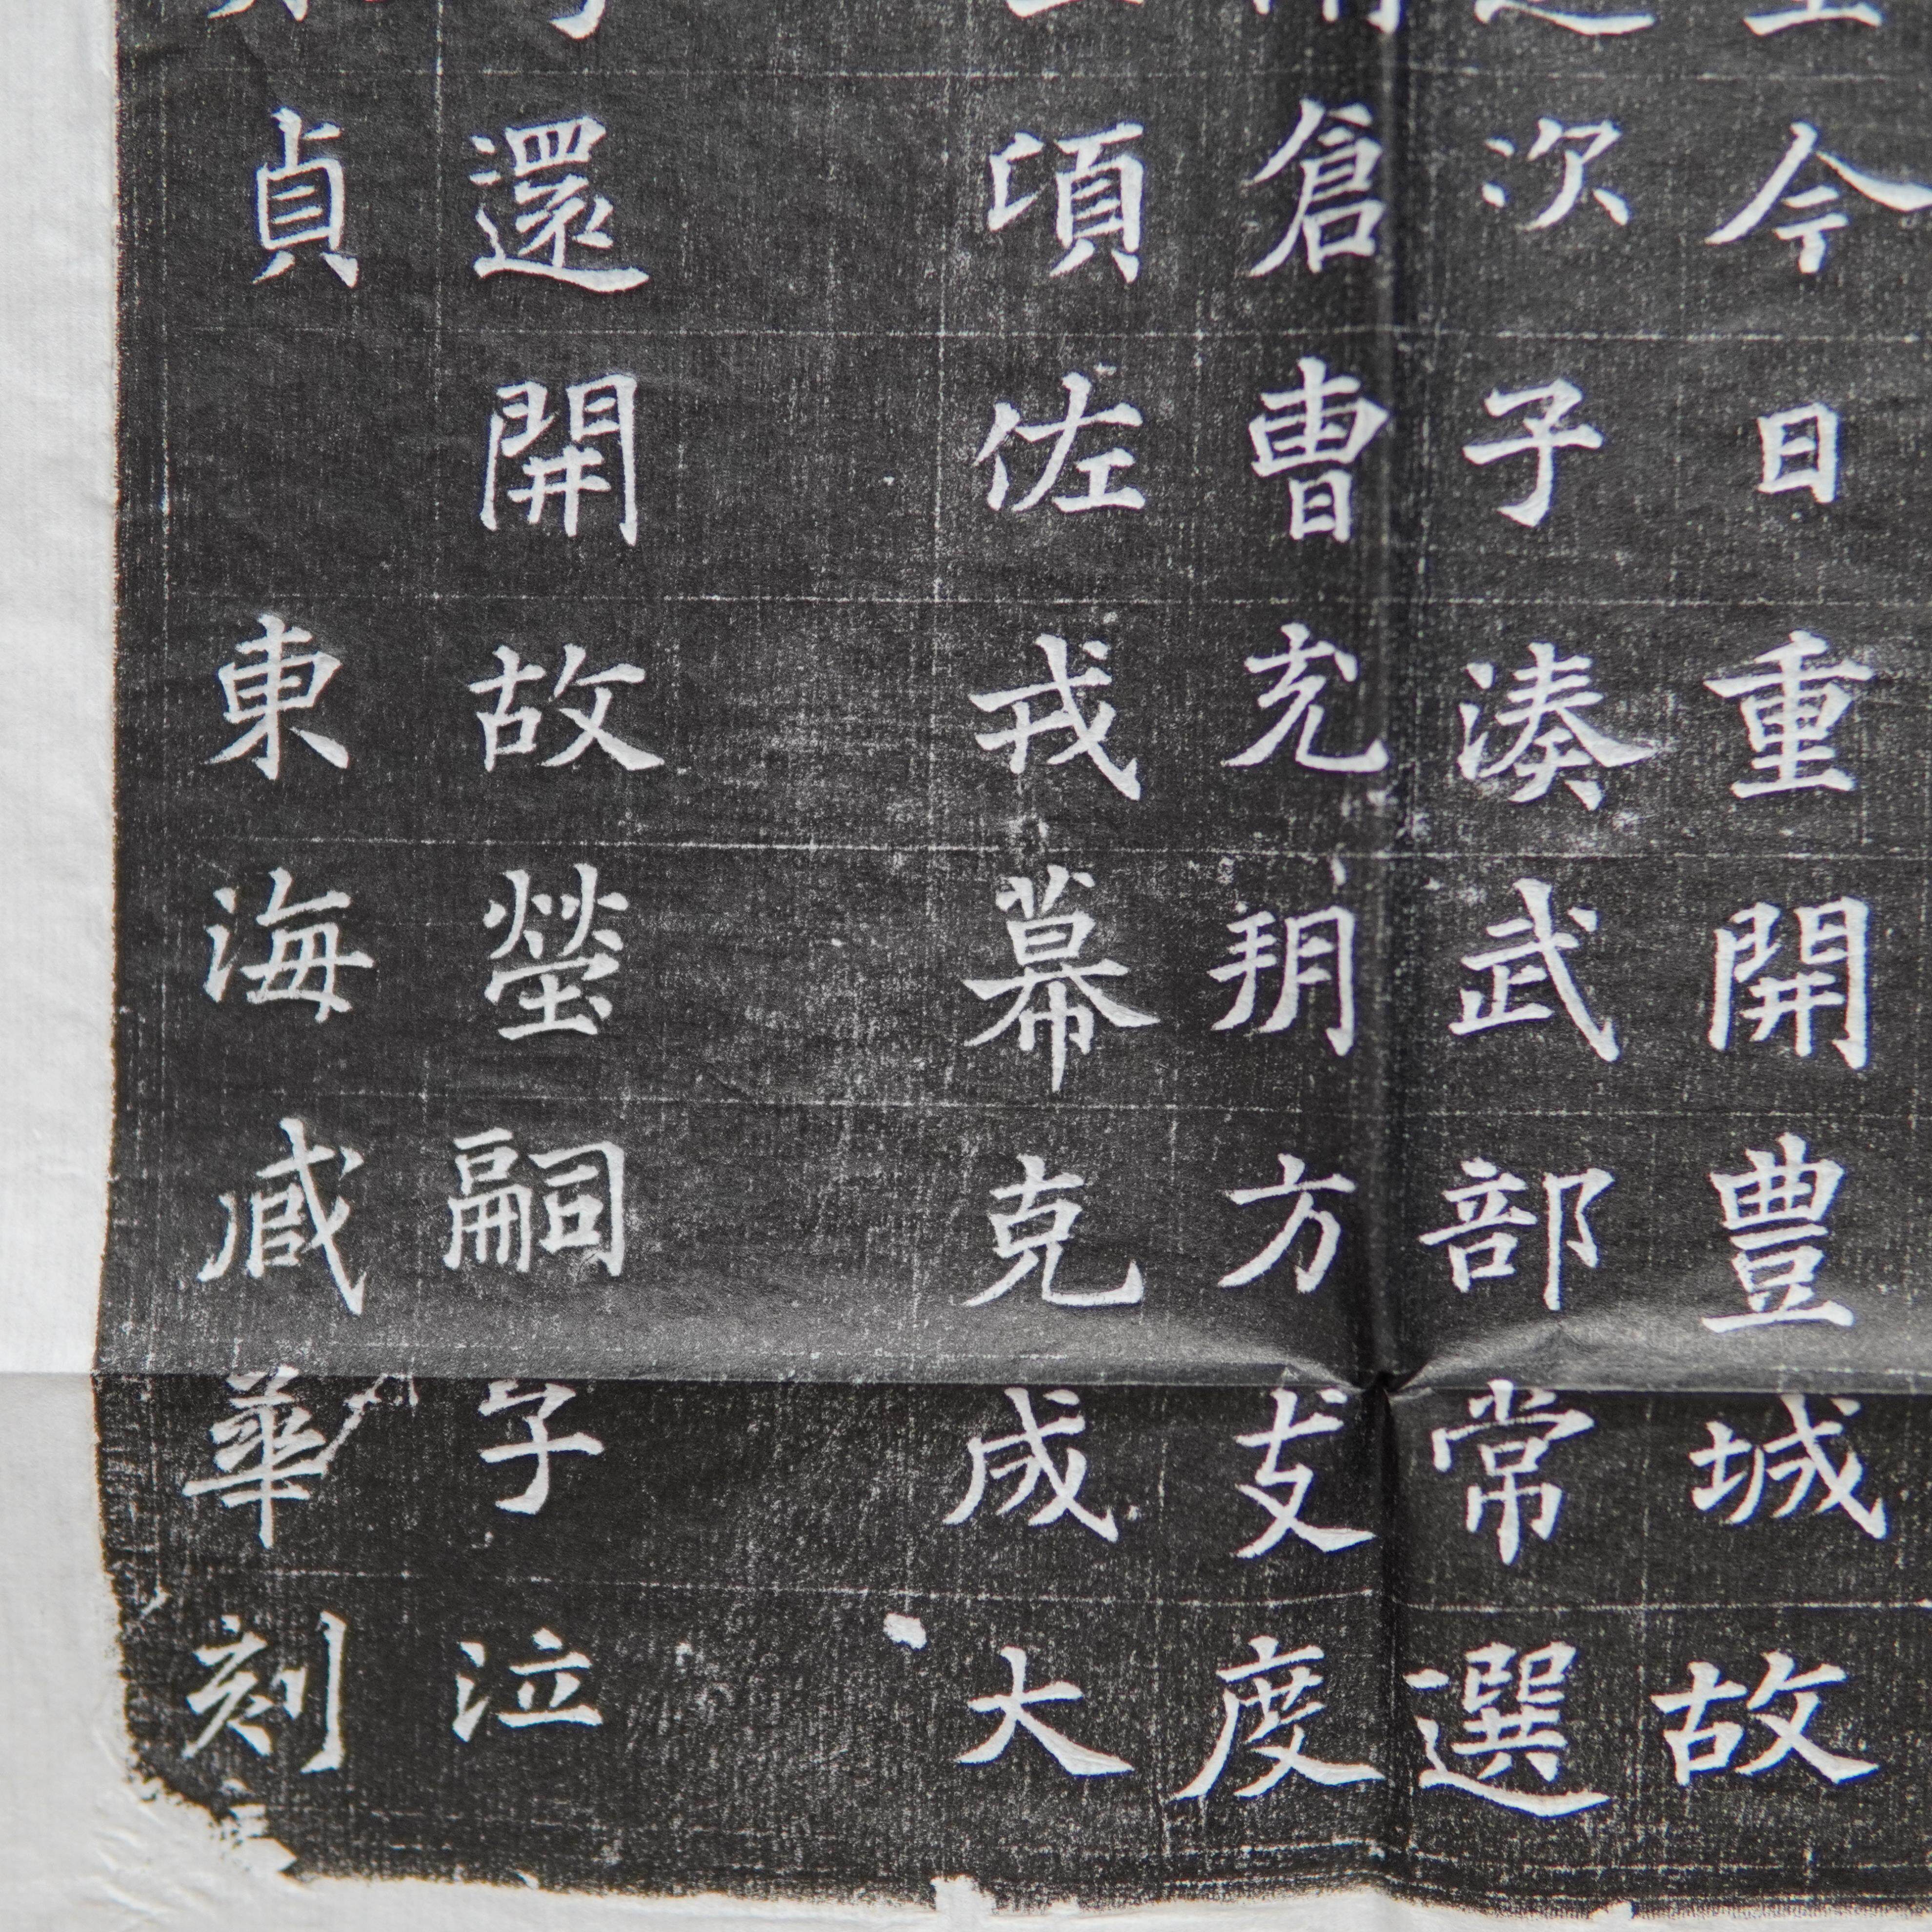 今日重開豊城故
次子湊武部常選
倉曹充朔方支度
頃佐戎幕克成大
還開故塋嗣子泣
貞 東海臧華刻